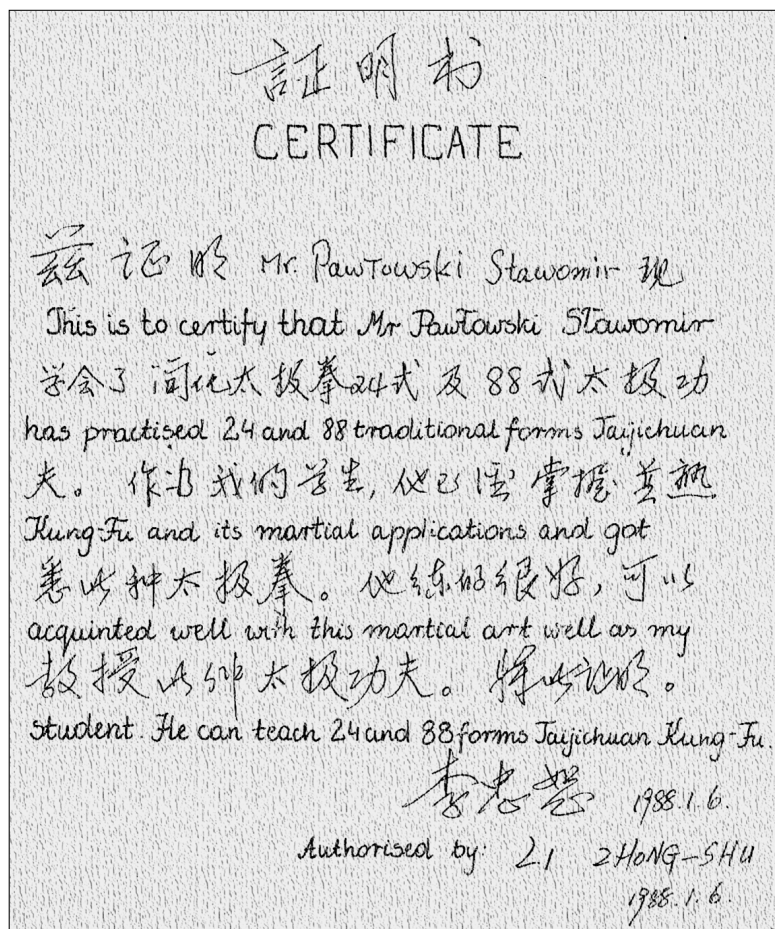 証明书
CERTIFICATE
兹证明 Mr. Pawłowski Sławomir 现
This is to certify that Mr Pawłowski Sławomir
学会了简化太极拳24式及88式太极功
has practised 24 and 88 traditional forms Taijichuan
夫。作为我的学生,他已经掌握并熟
Kung-Fu and its martial applications and got
悉此种太极拳。他练的很好,可以
acquinted well with this martial art well as my
教授此种太极功夫。特此证明。
student. He can teach 24 and 88 forms Taijichuan Kung-Fu.
李忠恕 1988.1.6.
Authorised by: LI ZHONG-SHU
1988.1.6.